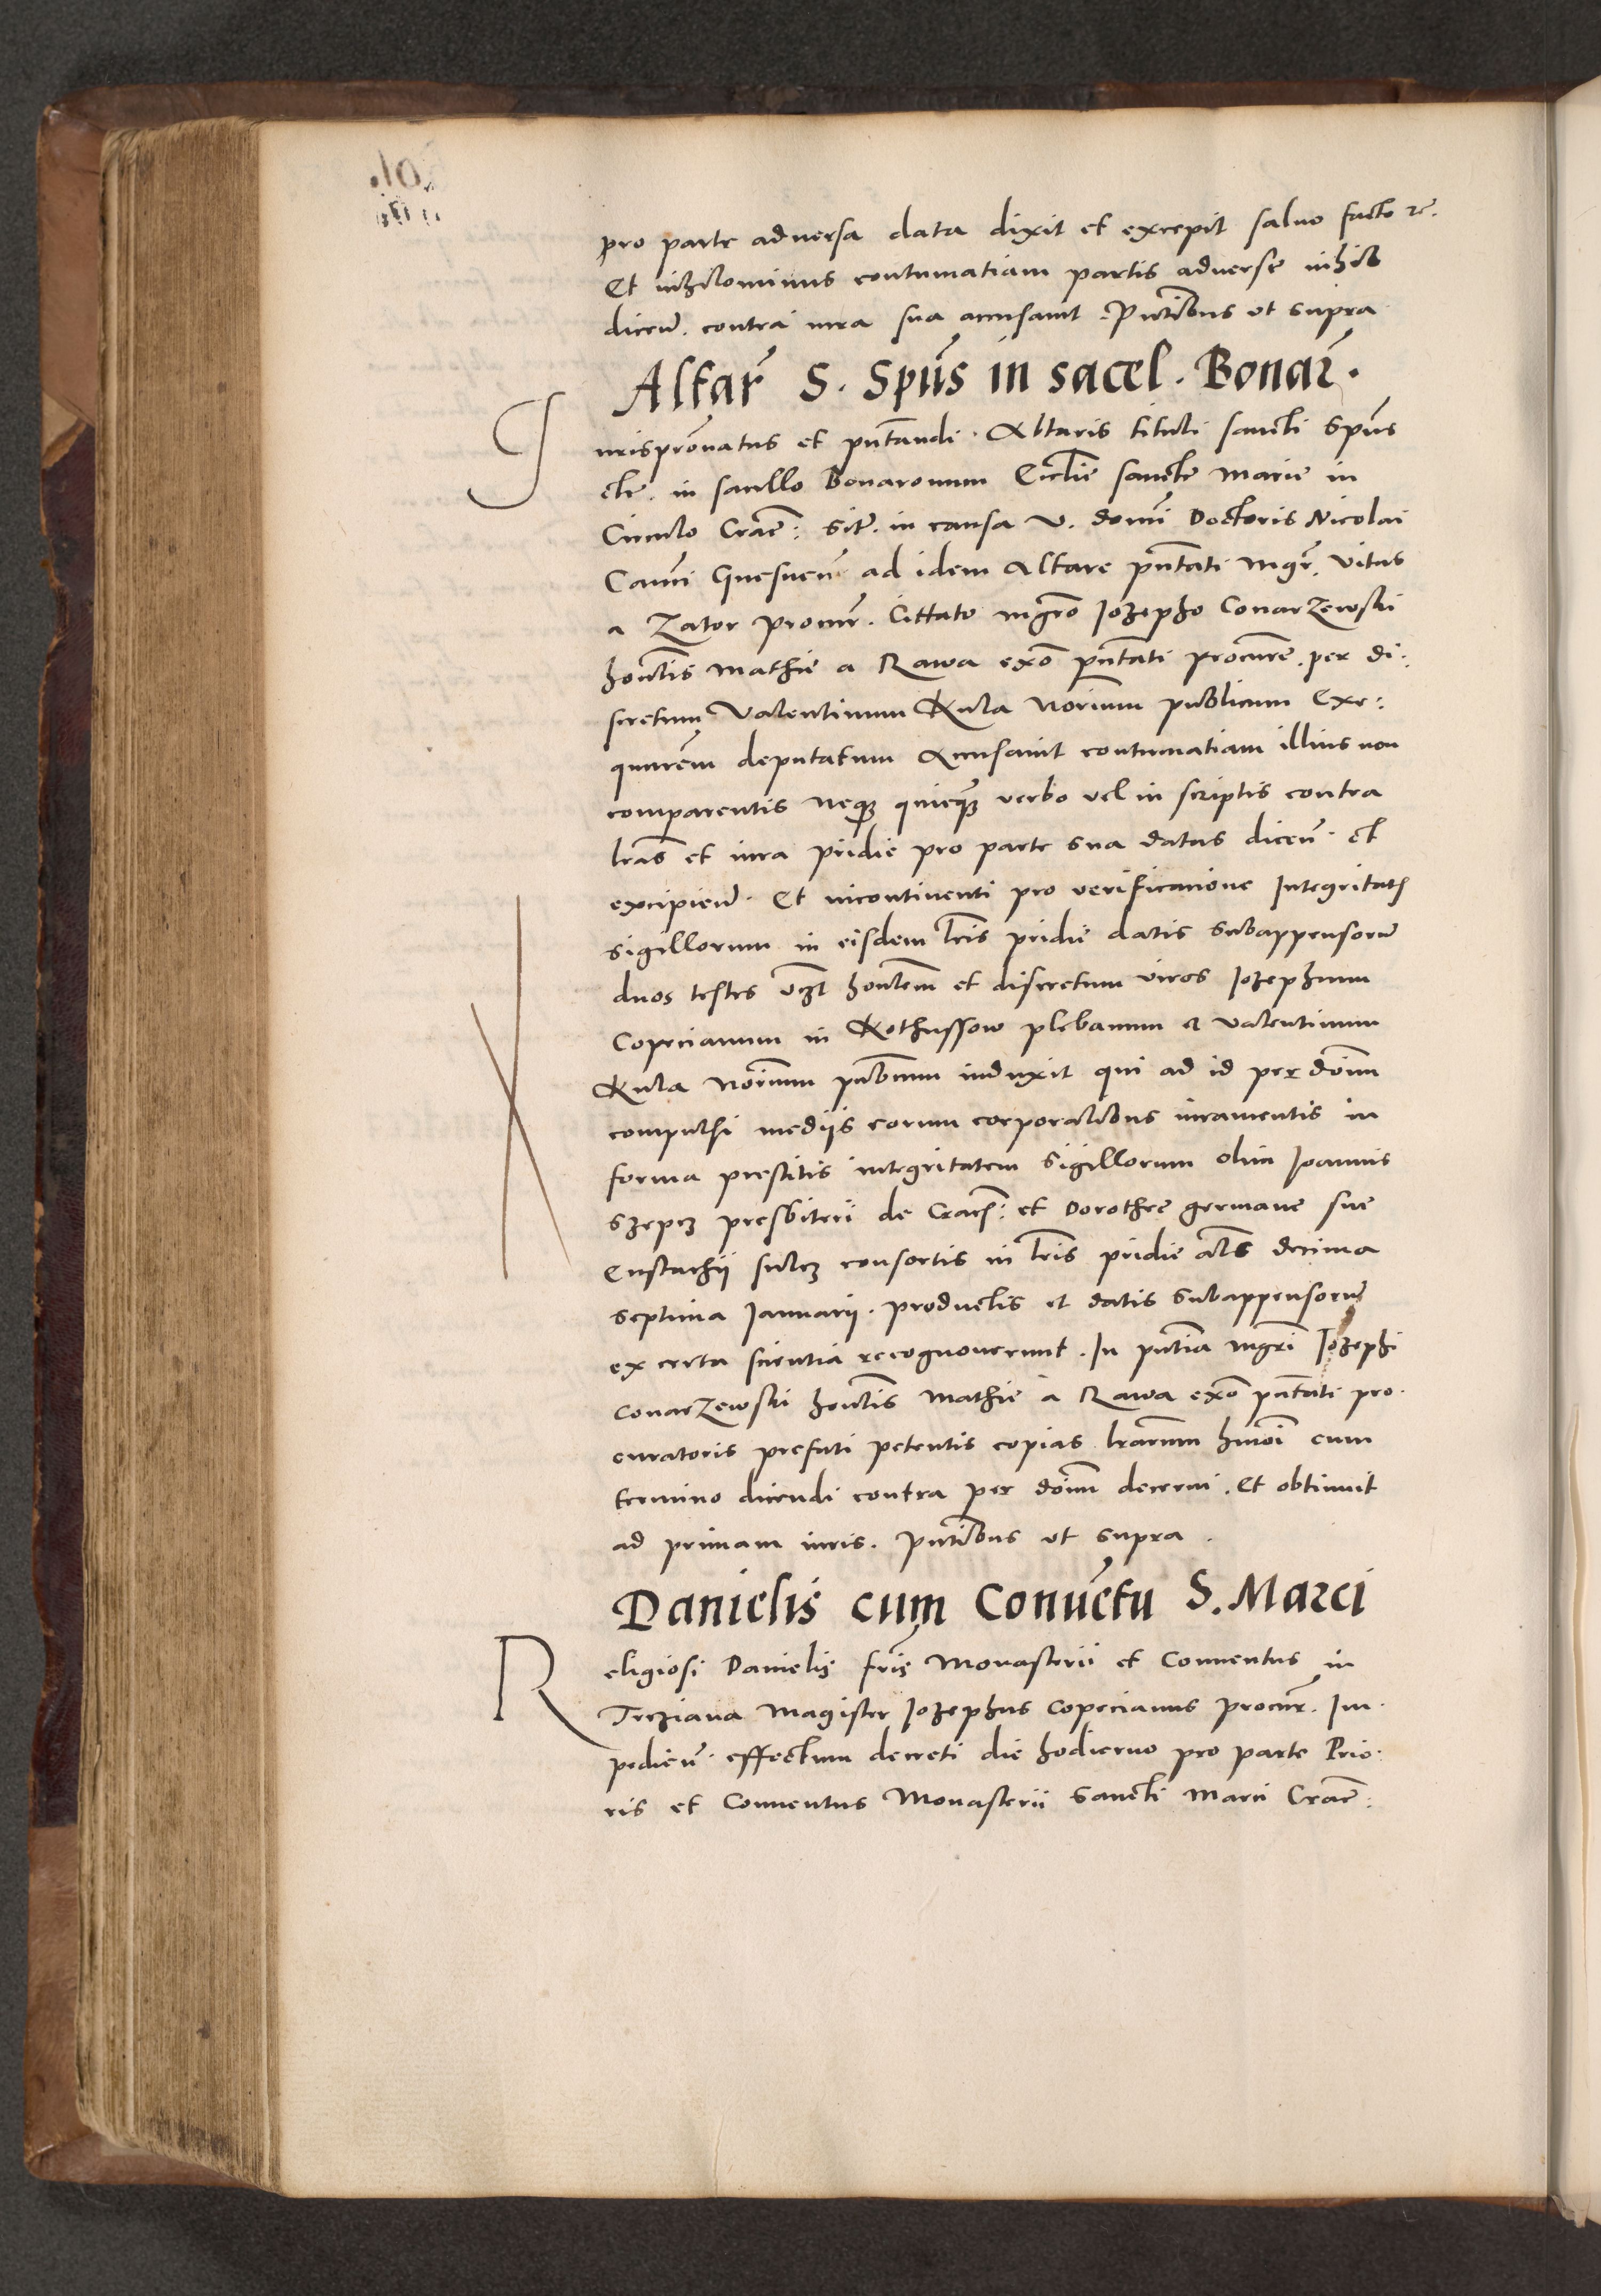 pro parte adversa data dixit et excepit salvo facto rc.
Et nihilominus contumatiam partis adverse nihil
diceñ. contra iura sua accusavit. Pntibus ut supra
Altar̃ S. Spũs in sacel. Bonar̃.
Jurisprõnatus et pñtandi. Altaris tituli sancti Spũs
etc. in sacello Bonaronum Ecclie sancte Marie in
Circulo Crac̃: sit̃. in causa V. domi Doctoris Nicolai
Canni Gnesneñ ad idem Altare pñtati Mgr̃. Vitus
a Zator Procur̃. Cittato mgro Jozepho Conarzewski
hontis Mathie a Rawa exõ pñtati procure. per di:
scretum Valentinum Kula Norium publicum Exe:
qutorem deputatum Accusavit contumatiam illius non
comparentis neq; quicq; verbo vel in scriptis contra
lrãs et iura pridie pro parte sua datas diceñ. et
excipieñ. Et incontinenti pro verificatione Integritatis
sigillorum in eisdem lris pridie datis subappensorũ
duos testes vzt hontem et discretum viros Jozephum
Copecianum in Kothussow plebanum et Valentinum
Kula Norium pubcum induxit qui ad id per domi
compulsi mediis eorum corporalibus iuramentis in
forma prestitis integritatem sigillorum olim Joannis
Szepcz presbiteri de Crac̃: et Dorothee germane sue
Eustachii sulcz consortis in lris pridie als decima
septima Januarii. productis et datis subappensorũ
ex certa scientia recognoverunt. In pntia mgri Jozephi
Conarzewski hontis Mathie a Rawa exõ pñtati pro.
curatoris prefati petentis copias lrarum hmoi cum
termino dicendi contra per domi decerni. Et obtinuit
ad primam iuris. Pntibus ut supra.
Danielis cum Convẽtu S. Marci
Religiosi Danielis fris Monasterii et Conventus in
Trcziana Magister Jozephus Copecianus procur̃. Im.
pedieñ. effectum decreti die hodierno pro parte Prio:
ris et Conventus Monasterii Sancti Marci Crac̃: